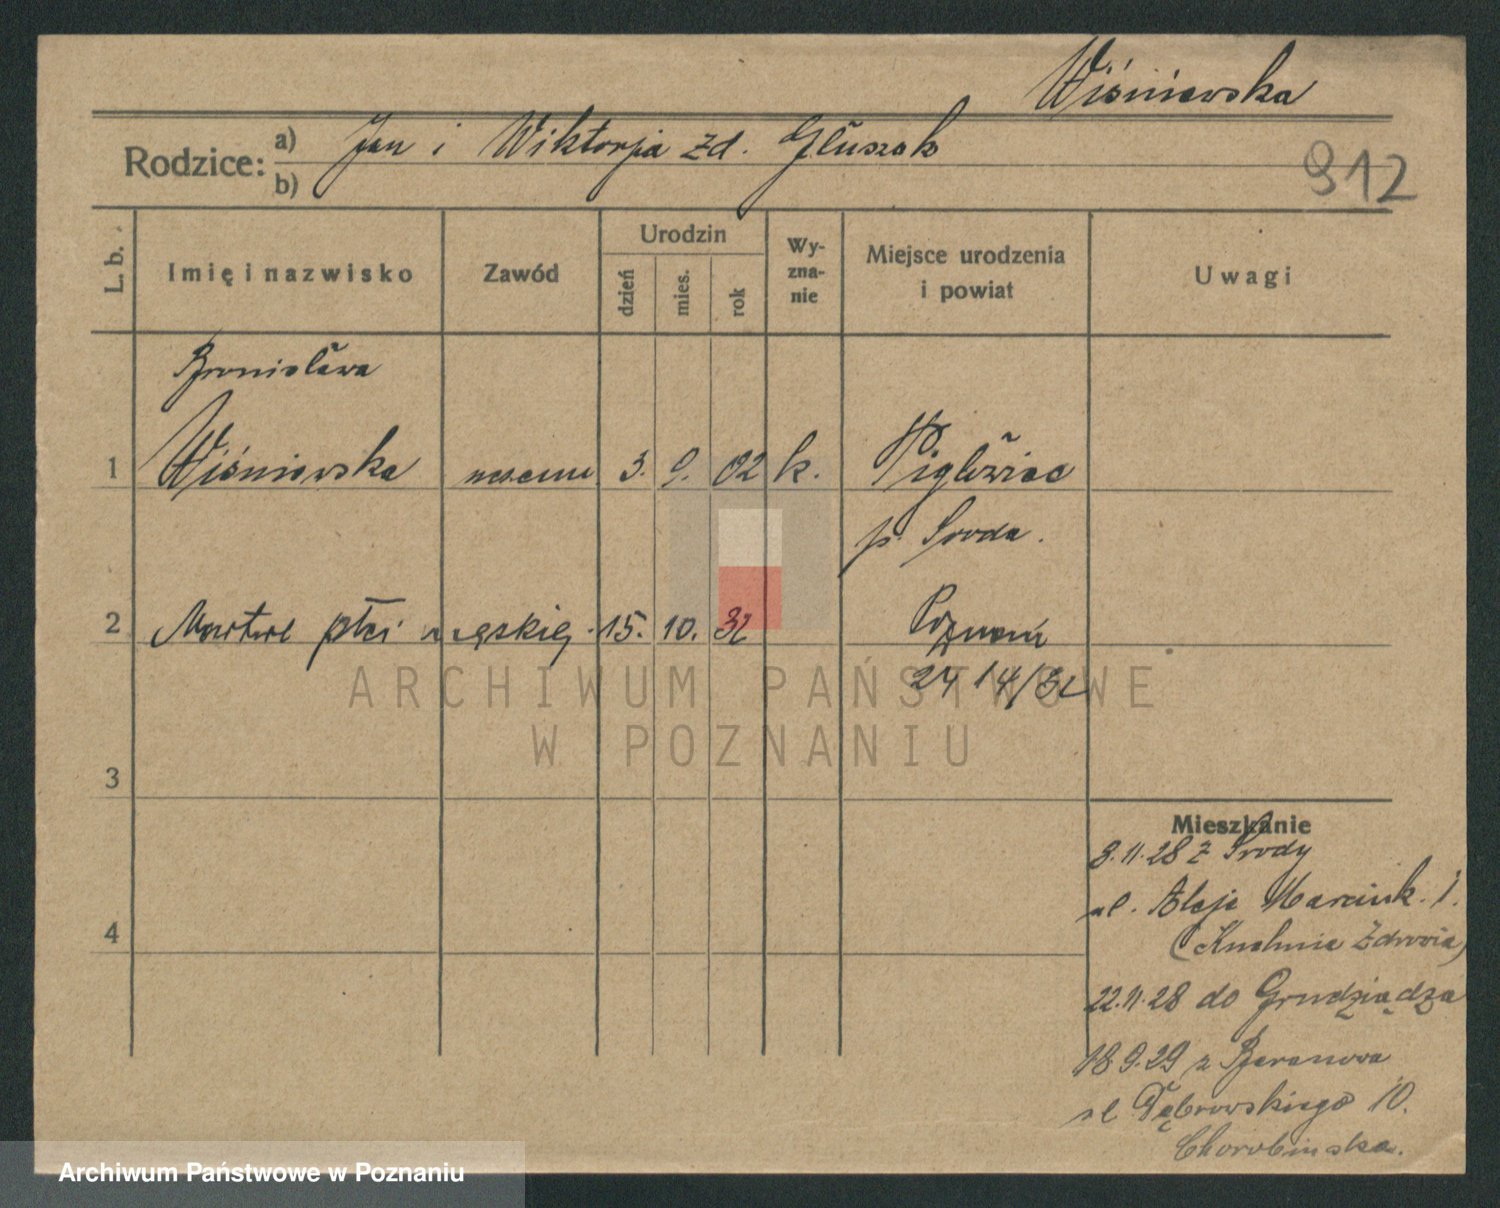 Wiśniewska
Rodzice: a) Jan i Wiktorja zd. Głuszak
b)
912
L. b.
Imię i nazwisko
Zawód
Urodzin
dzień
mies.
rok
Wy-
zna-
nie
Miejsce urodzenia
i powiat
Uwagi
Bronisława
1 Wiśniewska 3. 9. 02 k.
p. Środa.
2 Martwe płci męskiej 15. 10. 32 Poznań
3
4
Mieszkanie
8.11.28 z Środy
ul. Aleje Marcink. 1.
(Kuchnia Zdrowia)
22.11.28 do Grudziądza
18.9.29 z Baranowa
ul Dąbrowskiego 10.
ARCHIWUM PAŃSTWOWE
W POZNANIU
Archiwum Państwowe w Poznaniu